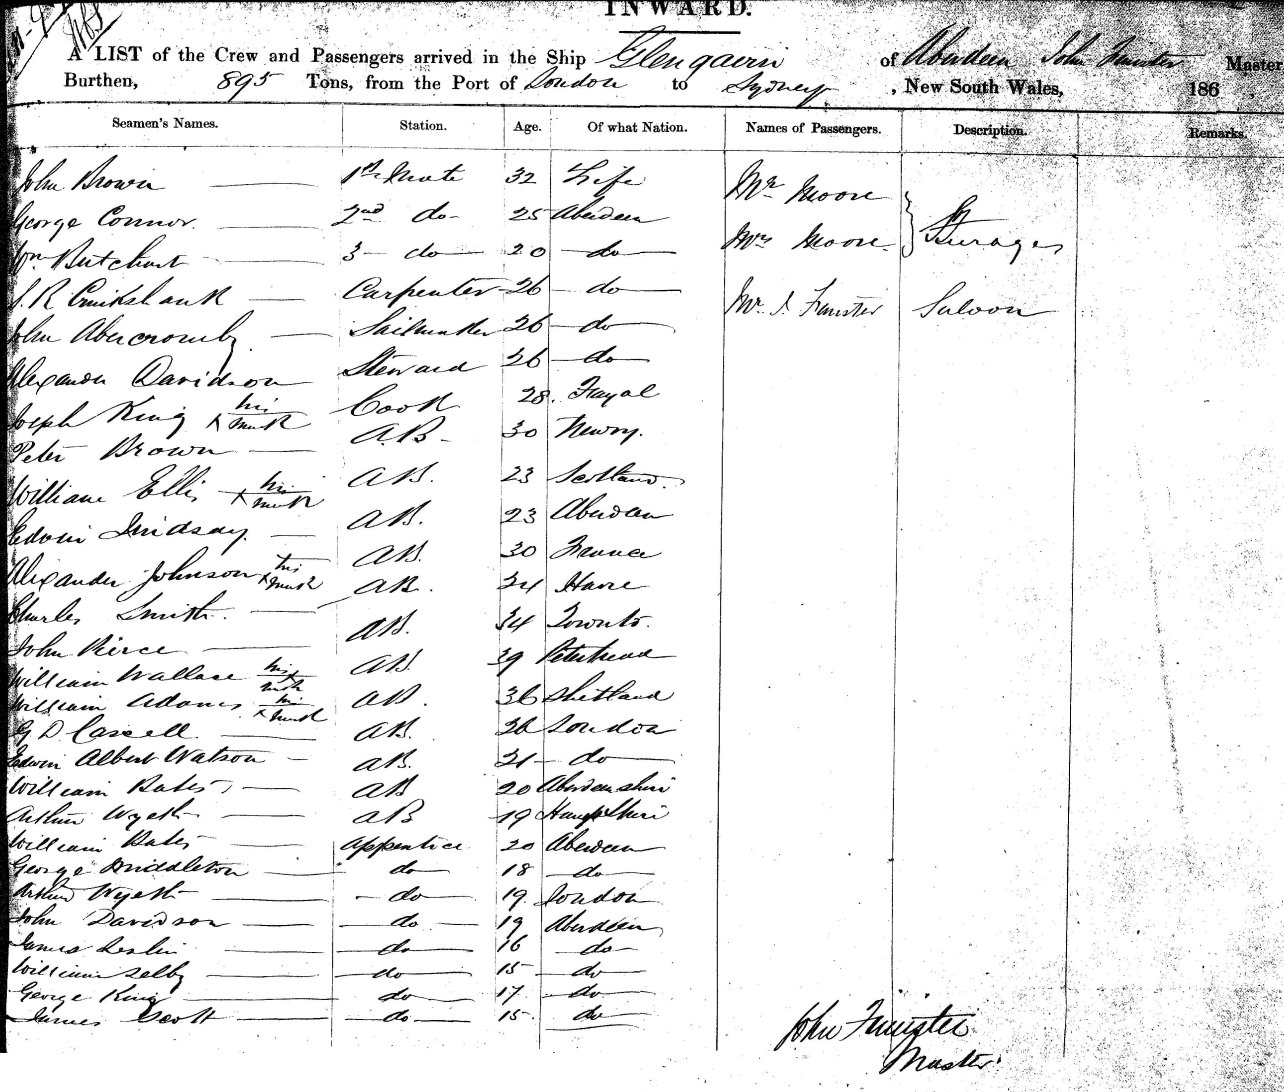 INWARD.
A LIST of the Crew and Passengers arrived in the Ship Glengairn of Aberdeen John Fimister Master
Burthen, 895 Tons, from the Port of London to Sydney, New South Wales, 186
Seamen's Names. Station. Age. Of what Nation. Names of Passengers. Description. Remarks.
John Brown 1st Mate 32 Fife Mr Moore
George Connor 2nd do 25 Aberdeen Mrs Moore Sturages
Wm Butchart 3 do 20 do
J. R Cruikshank Carpenter 26 do Mr J Fimister Saloon
John Abercromby Sailmaker 26 do
Alexander Davidson Steward 26 do
Joseph King his X mark Cook 28 Fayal
Peter Brown A.B 30 Newry.
William Ellis his X mark AB. 23 Scotland
Edwin Lindsay AB. 23 Aberdeen
Alexander Johnson his X mark AB. 30 France
Charles Smith AB. 24 Havre
John Pierce AB. 34 Toronto
William Wallace his X mark AB 39 Peterhead
William Adams his X mark AB. 36 Shetland
G D Cassell AB. 26 London
Edwin Albert Watson AB. 21 do
William Bates AB 20 Aberdeenshire
Arthur Wyeth AB 19 Hampshire
William Bates Apprentice 20 Aberdeen
George Middleton do 18 do
Arthur Wyeth do 19 London
John Davidson do 19 Aberdeen
James Leslie do 16 do
William Selby do 15 do
George King do 17 do
James Scott do 15 do
John Fimister
Master